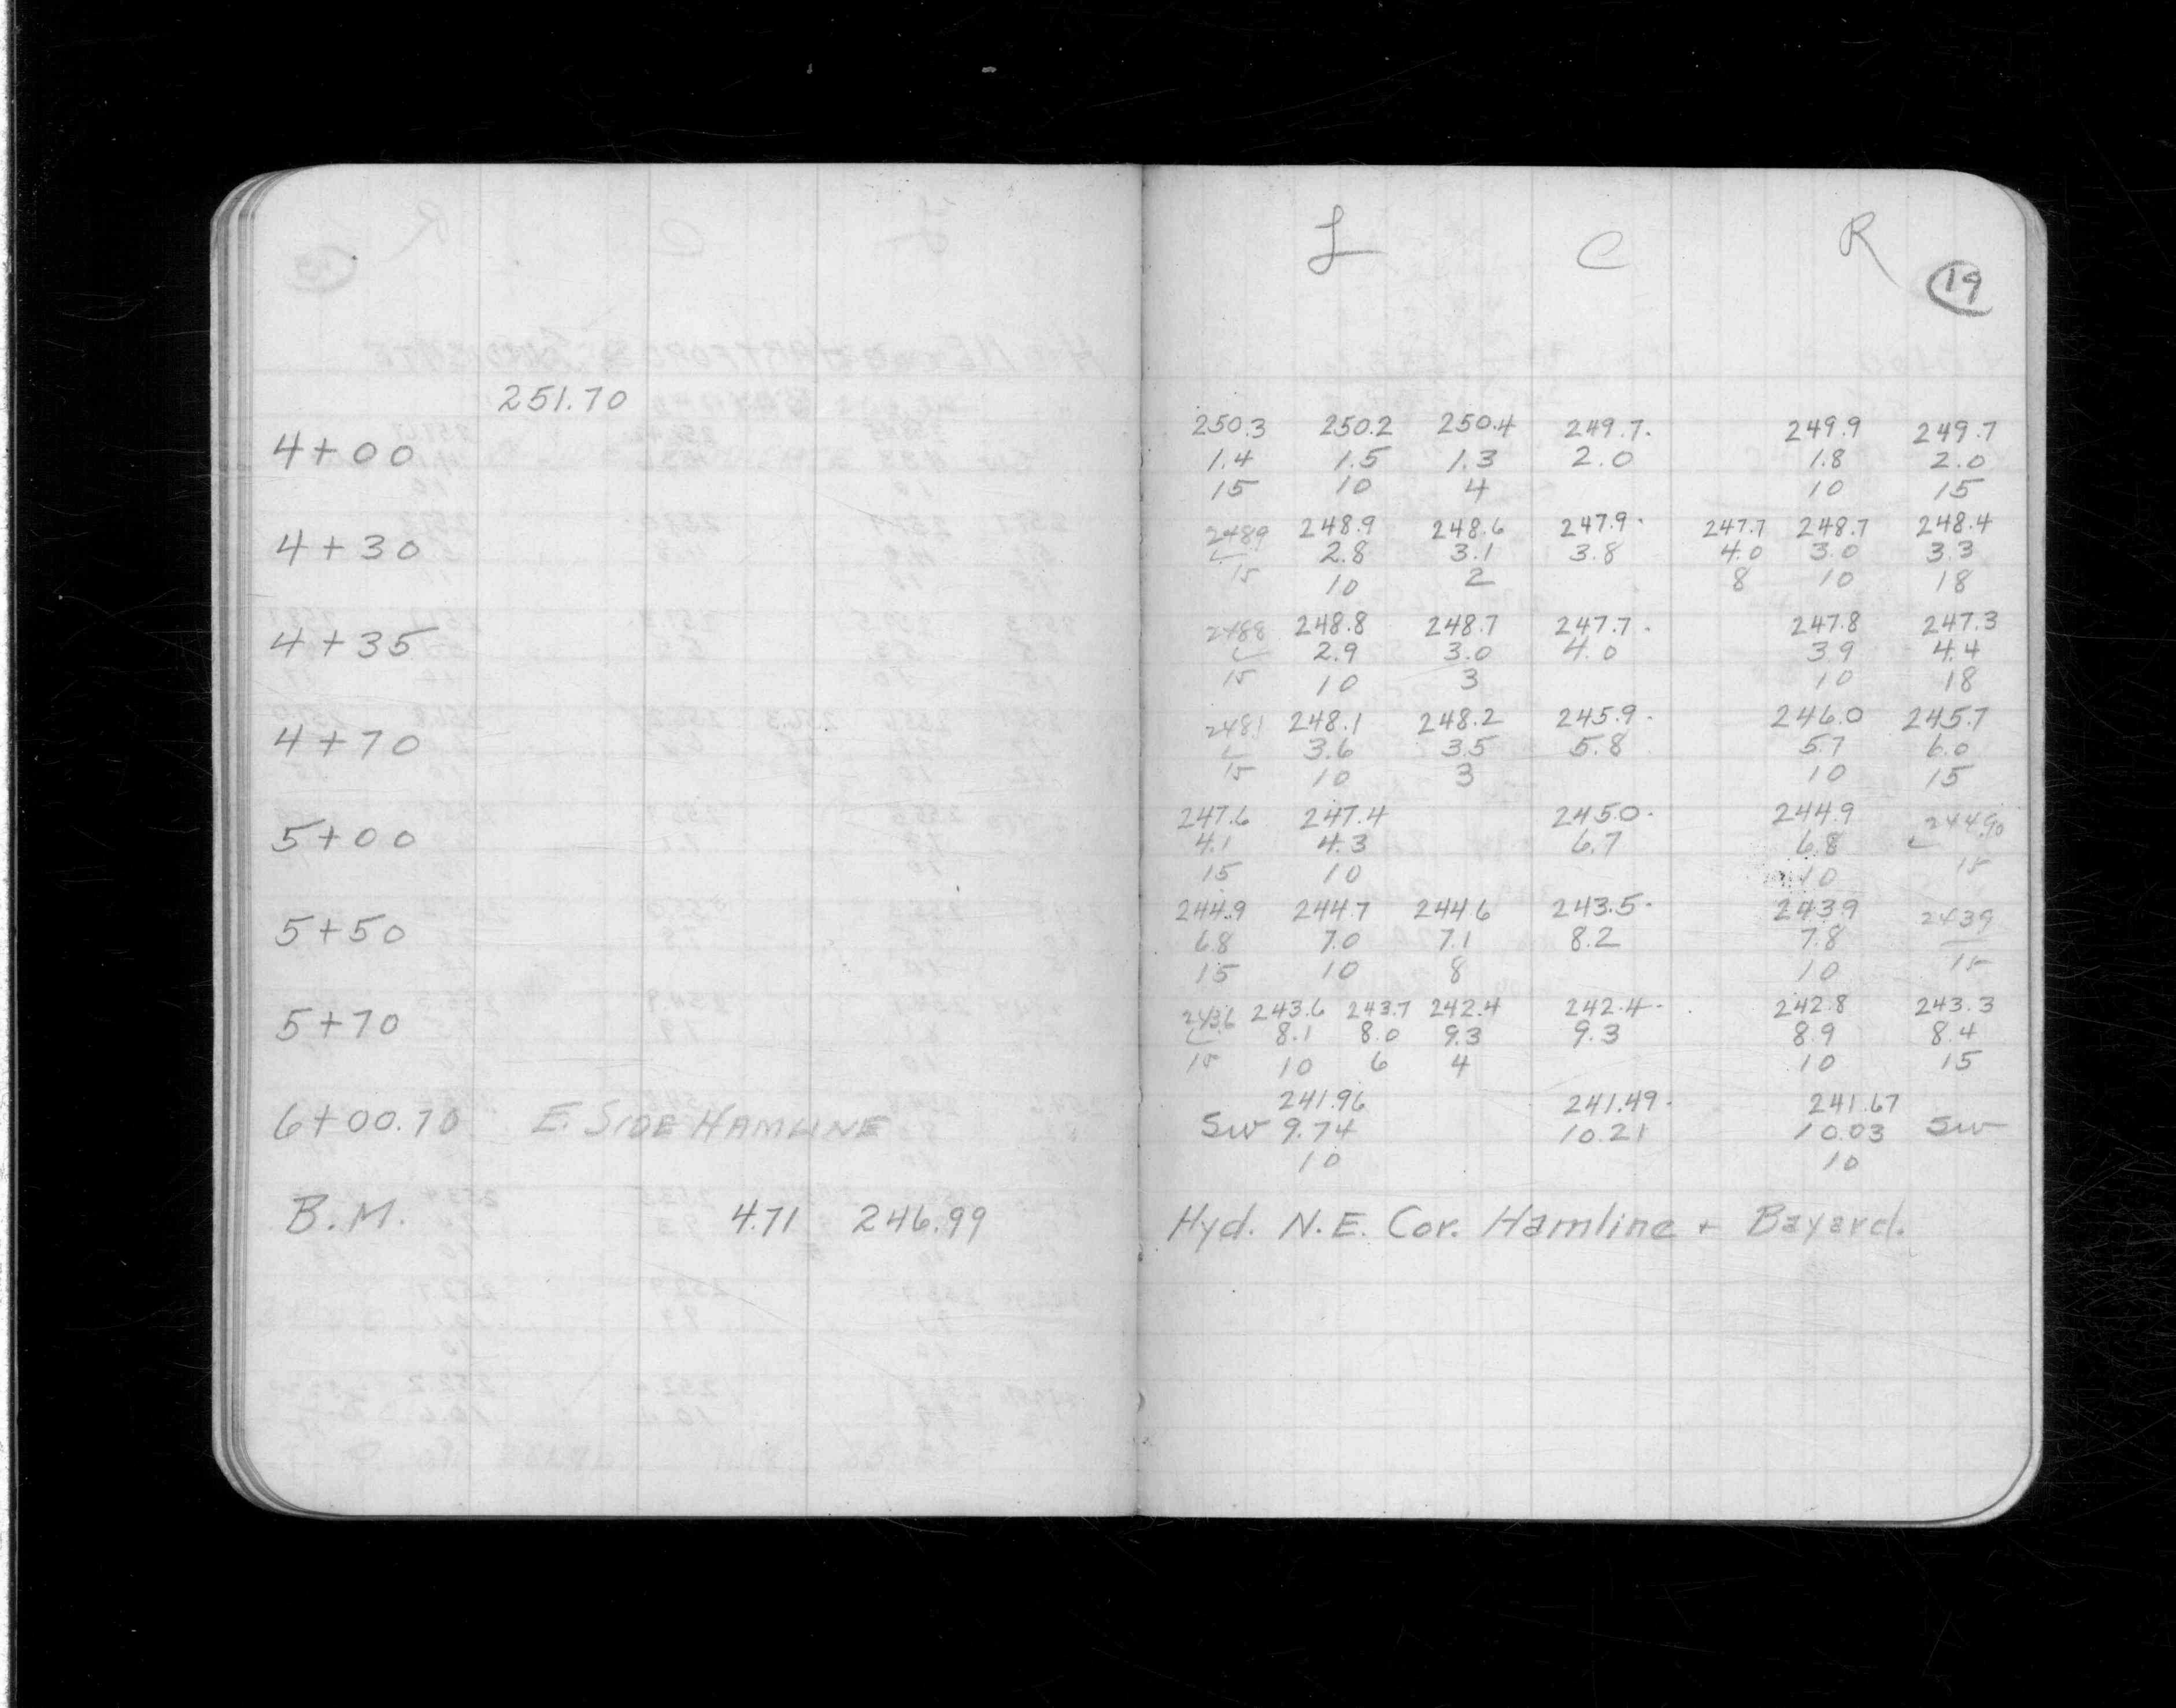 L C R
19
251.70
250.3 250.2 250.4 249.7. 249.9 249.7
4+00 1.4 1.5 1.3 2.0 1.8 2.0
15 10 4 10 15
248.9 248.9 248.6 247.9. 247.7 248.7 248.4
4+30 2.8 3.1 3.8 4.0 3.0 3.3
15 10 2 8 10 18
248.8 248.8 248.7 247.7. 247.8 247.3
4+35 2.9 3.0 4.0 3.9 4.4
15 10 3 10 18
248.1 248.1 248.2 245.9. 246.0 245.7
4+70 3.6 3.5 5.8 5.7 6.0
15 10 3 10 15
247.6 247.4 245.0. 244.9
5+00 4.1 4.3 6.7 6.8
15 10 10 15
244.9 244.7 244.6 243.5. 243.9 243.9
5+50 6.8 7.0 7.1 8.2 7.8
15 10 8 10 15
243.6 243.6 243.7 242.4 242.4. 242.8 243.3
5+70 8.1 8.0 9.3 9.3 8.9 8.4
15 10 6 4 10 15
241.96 241.49. 241.67
6+00.70 E. SIDE HAMLINE SW 9.74 10.21 10.03 SW
10 10
B.M. 4.71 246.99 Hyd. N.E. Cor. Hamline + Bayard.